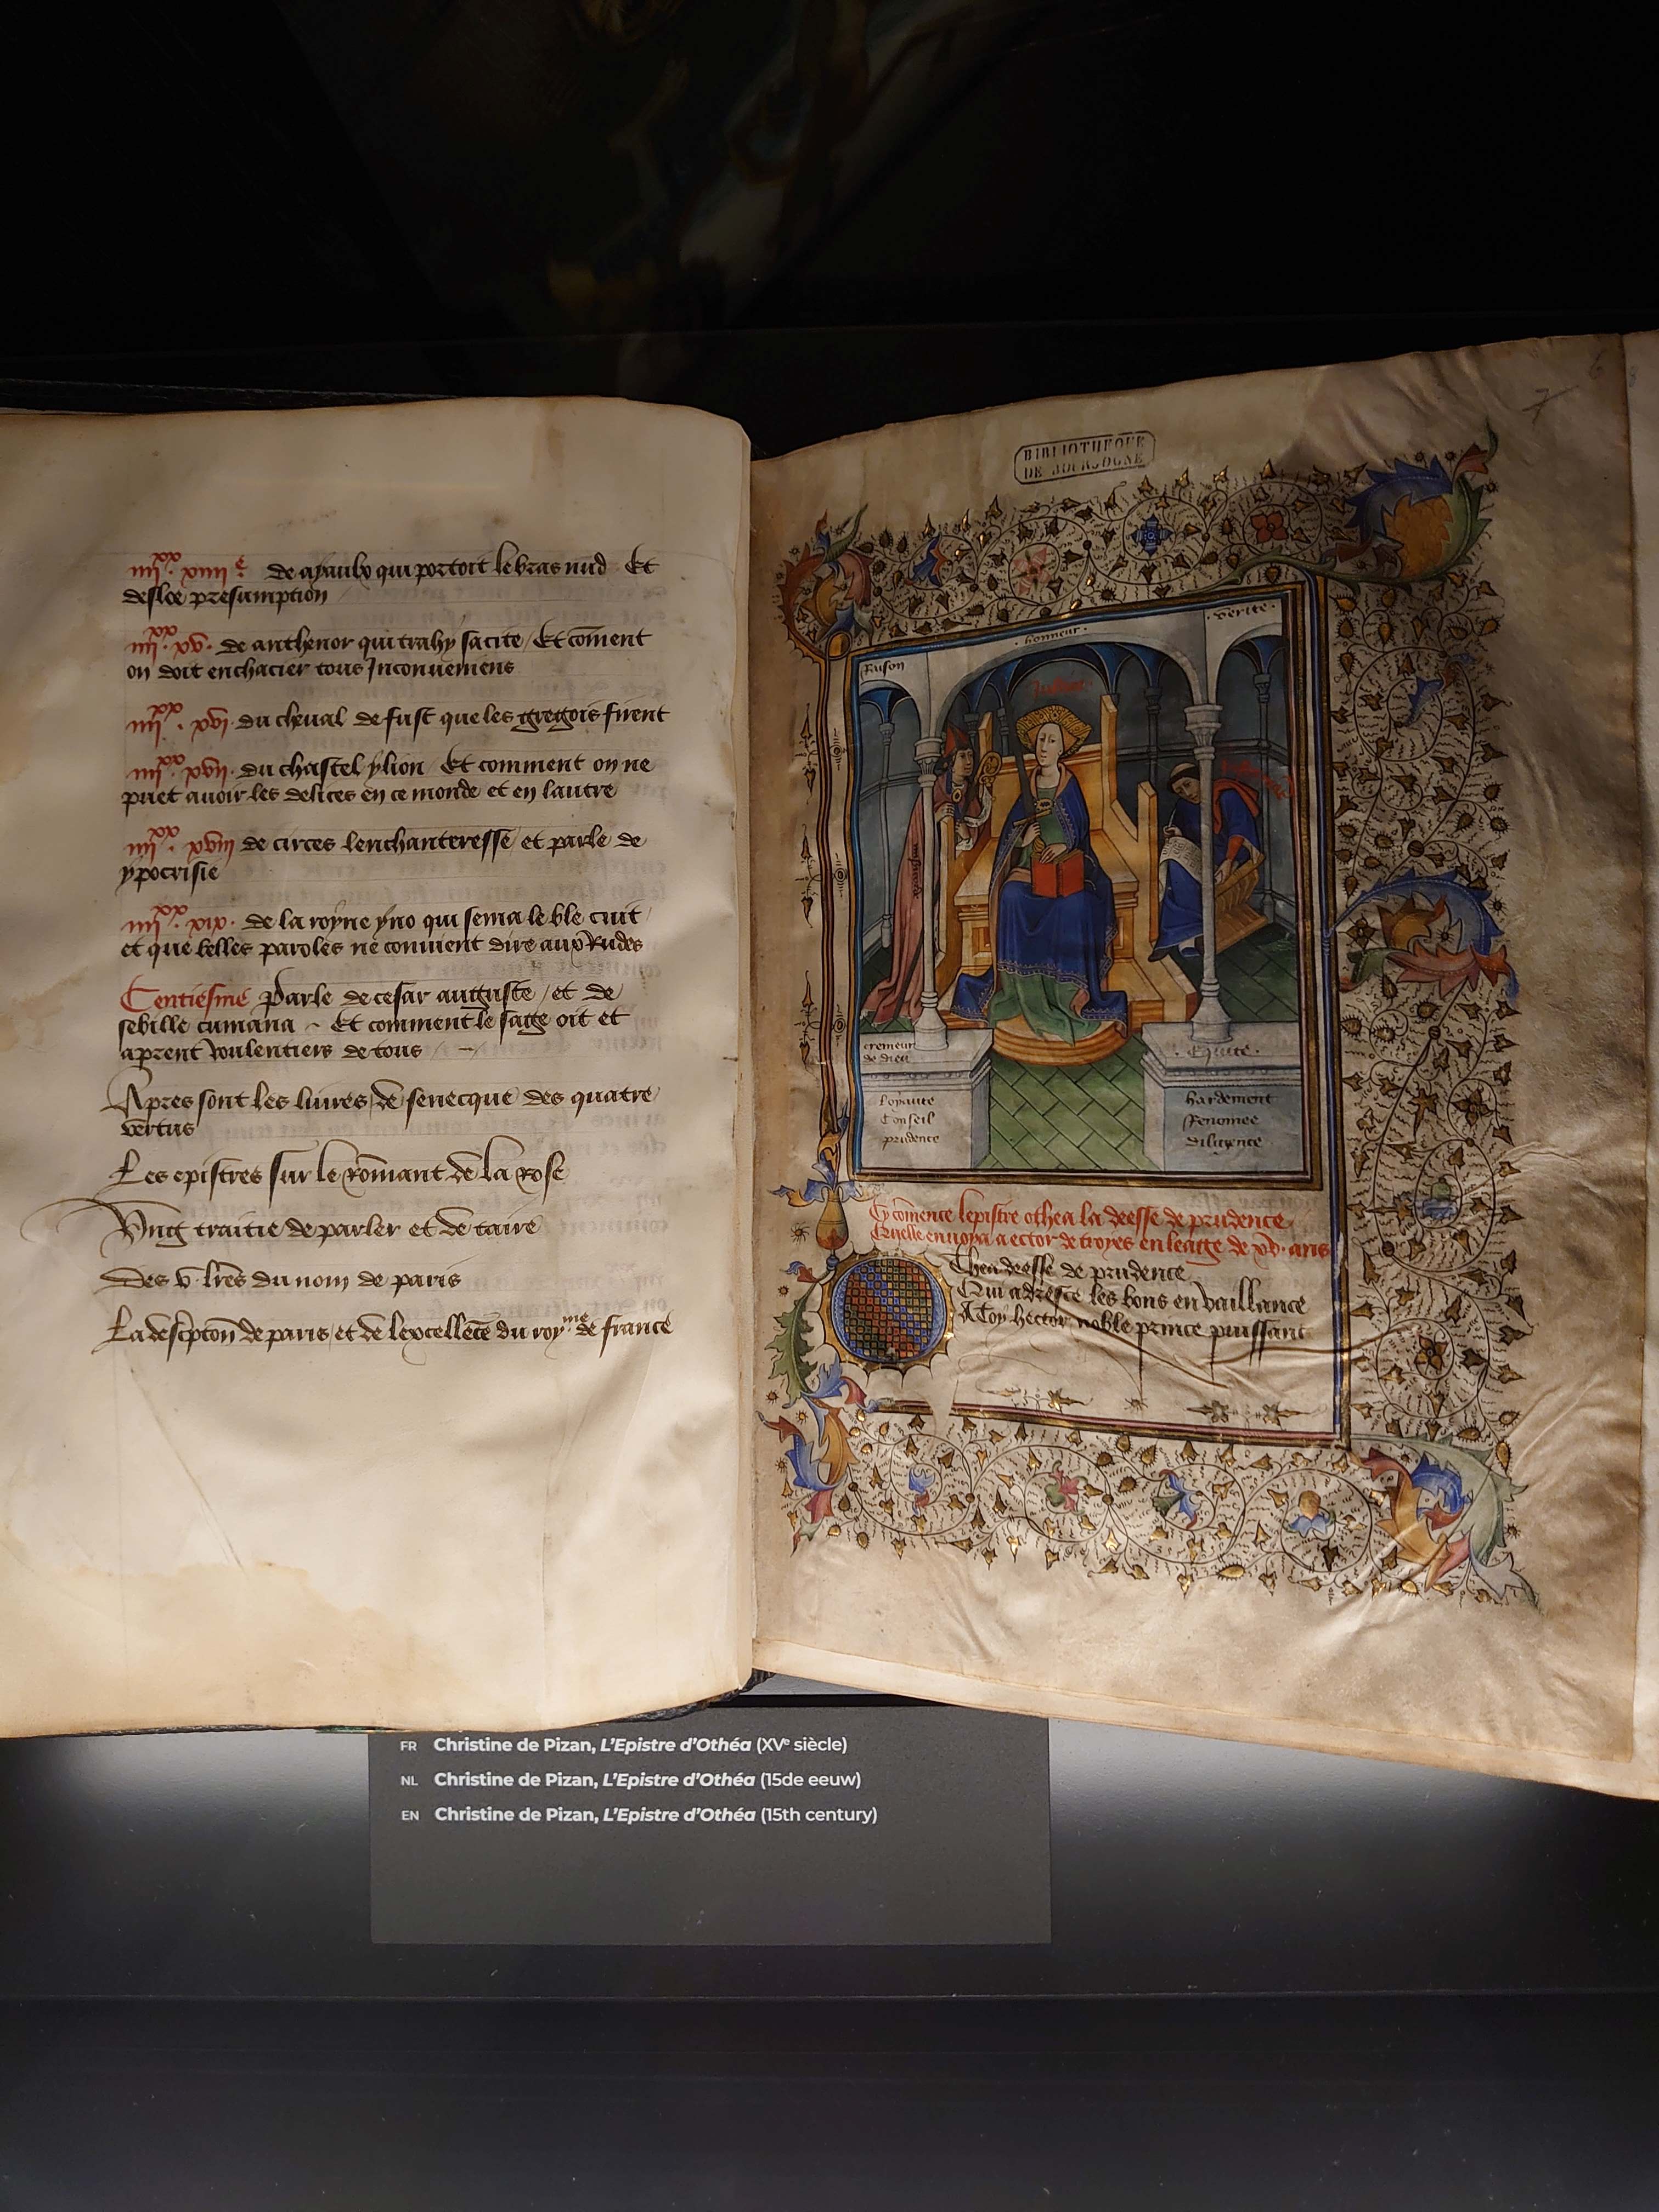 iiii xx. xiiii e. de ayaulx qui portoit le bras nud Et
desloe presumption
iiii xx. xv. de anthenor qui trahy sa cite / Et coment
on doit enchacier tous Inconueniens
iiii xx. xvi. du cheual de fust que les gregois firent
iiii xx. xvii. du chastel ylion / Et comment on ne
puet auoir les delices en ce monde et en lautre
iiii xx. xviii de circes lenchanteresse et parle de
ypocrisie
iiii xx. xix. de la royne yno qui sema le ble cuit
et que belles paroles ne conuient dire aux Rudes
Centiesme parle de cesar auguste / et de
sebille cumana ~ Et comment le sage oit et
aprent voulentiers de tous
Apres sont les liures de senecque des quatre
vertus
Les epistres sur le romant de la rose
Vng traitie de parler et de taire
Des v. lres du nom de paris
La descpton de paris / et de lexcellece du roy.me de france
7 6
BIBLIOTHEQUE
DE BOURGOGNE
Raison
. honneur .
. verite .
Justice
cremeur
de dieu
. Equite .
Loyaute
Conseil
prudence
hardement
Renomee
diligence
Cy comence lepistre othea la deesse de prudence
Quelle enuoya a ector de troyes en leage de xv. ans
Thea deesse de prudence
Qui adresce les bons en vaillance
A toy hector noble prince puissant
FR Christine de Pizan, L'Epistre d'Othéa (XVe siècle)
NL Christine de Pizan, L'Epistre d'Othéa (15de eeuw)
EN Christine de Pizan, L'Epistre d'Othéa (15th century)